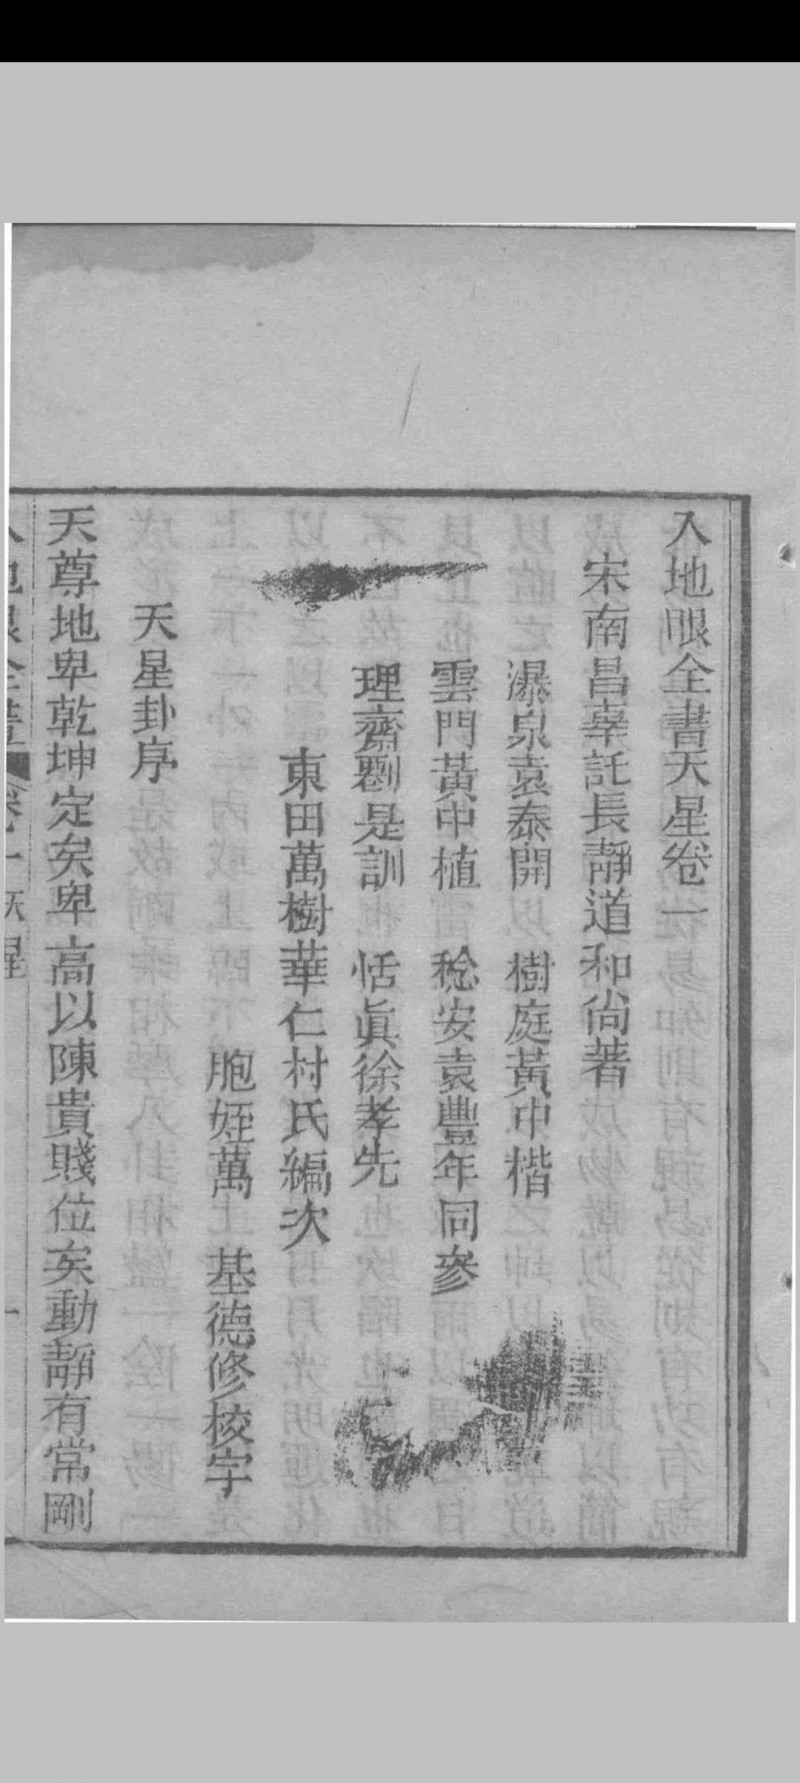 入地眼全書天星卷一
宋南昌辜託長靜道和尙著
瀑泉袁泰開 樹庭黃中楷
雲門黃中植 稔安袁豐年同參
理齋劉是訓 恬眞徐孝先
東田萬樹華仁村氏編次
胞姪萬 基德修校字
天星卦序
天尊地卑乾坤定矣卑高以陳貴賤位矣動靜有常剛
入地眼全書 卷一 天星 一